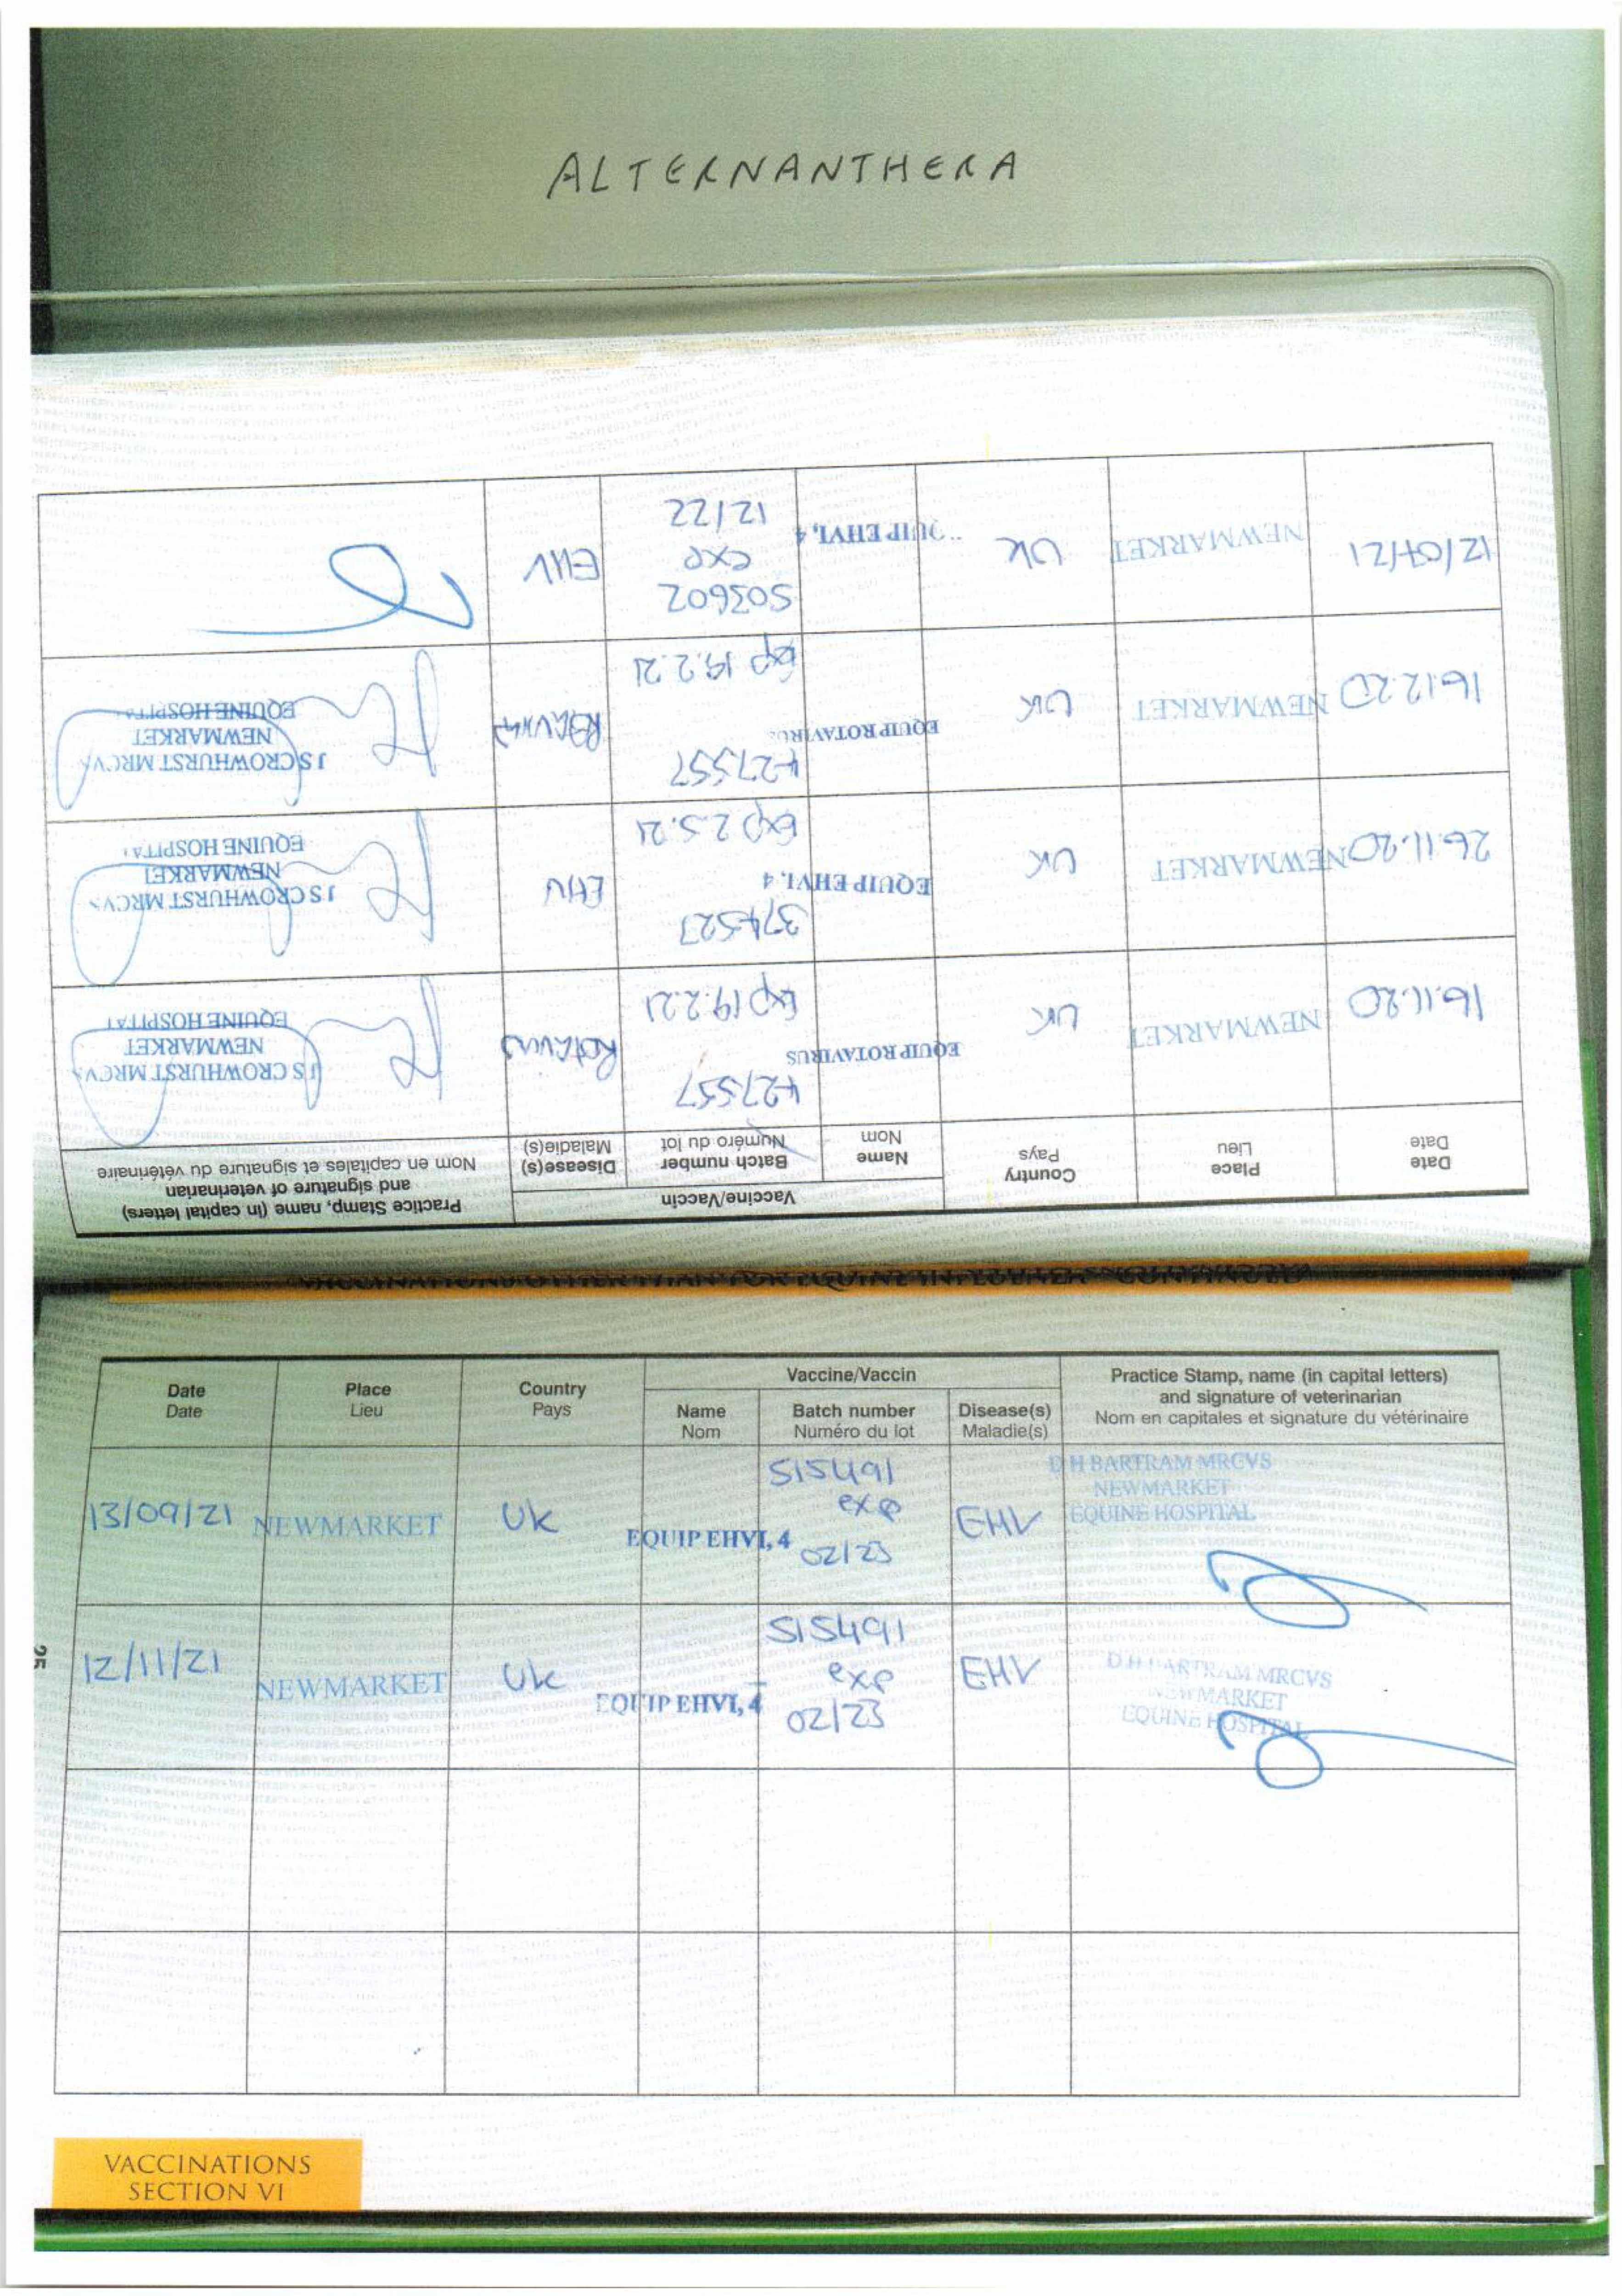 ALTERNANTHERA
Date Place Country Vaccine/Vaccin Practice Stamp, name (in capital letters)
and signature of veterinarian
Date Lieu Pays Name Batch number Disease(s) Nom en capitales et signature du vétérinaire
Nom Numéro du lot Maladie(s)
16.11.20 NEWMARKET UK EQUIP ROTAVIRUS 427557 Exp 19.2.21 Rotavirus J S CROWHURST MRCVS
NEWMARKET
EQUINE HOSPITAL
26.11.20 NEWMARKET UK EQUIP EHV1, 4 374523 Exp 2.5.21 EHV J S CROWHURST MRCVS
NEWMARKET
EQUINE HOSPITAL
16.12.20 NEWMARKET UK EQUIP ROTAVIRUS 427557 Exp 19.2.21 Rotavirus J S CROWHURST MRCVS
NEWMARKET
EQUINE HOSPITAL
12/07/21 NEWMARKET UK EQUIP EHV1, 4 503602 exp 12/22 EHV
VACCINATIONS OTHER THAN FOR EQUINE INFLUENZA - CONTINUED
Date Place Country Vaccine/Vaccin Practice Stamp, name (in capital letters)
and signature of veterinarian
Date Lieu Pays Name Batch number Disease(s) Nom en capitales et signature du vétérinaire
Nom Numéro du lot Maladie(s)
13/09/21 NEWMARKET Uk EQUIP EHV1, 4 515491 exp 02/23 EHV D H BARTRAM MRCVS
NEWMARKET
EQUINE HOSPITAL
12/11/21 NEWMARKET Uk EQUIP EHV1, 4 515491 exp 02/23 EHV D H BARTRAM MRCVS
NEWMARKET
EQUINE HOSPITAL
25
VACCINATIONS
SECTION VI